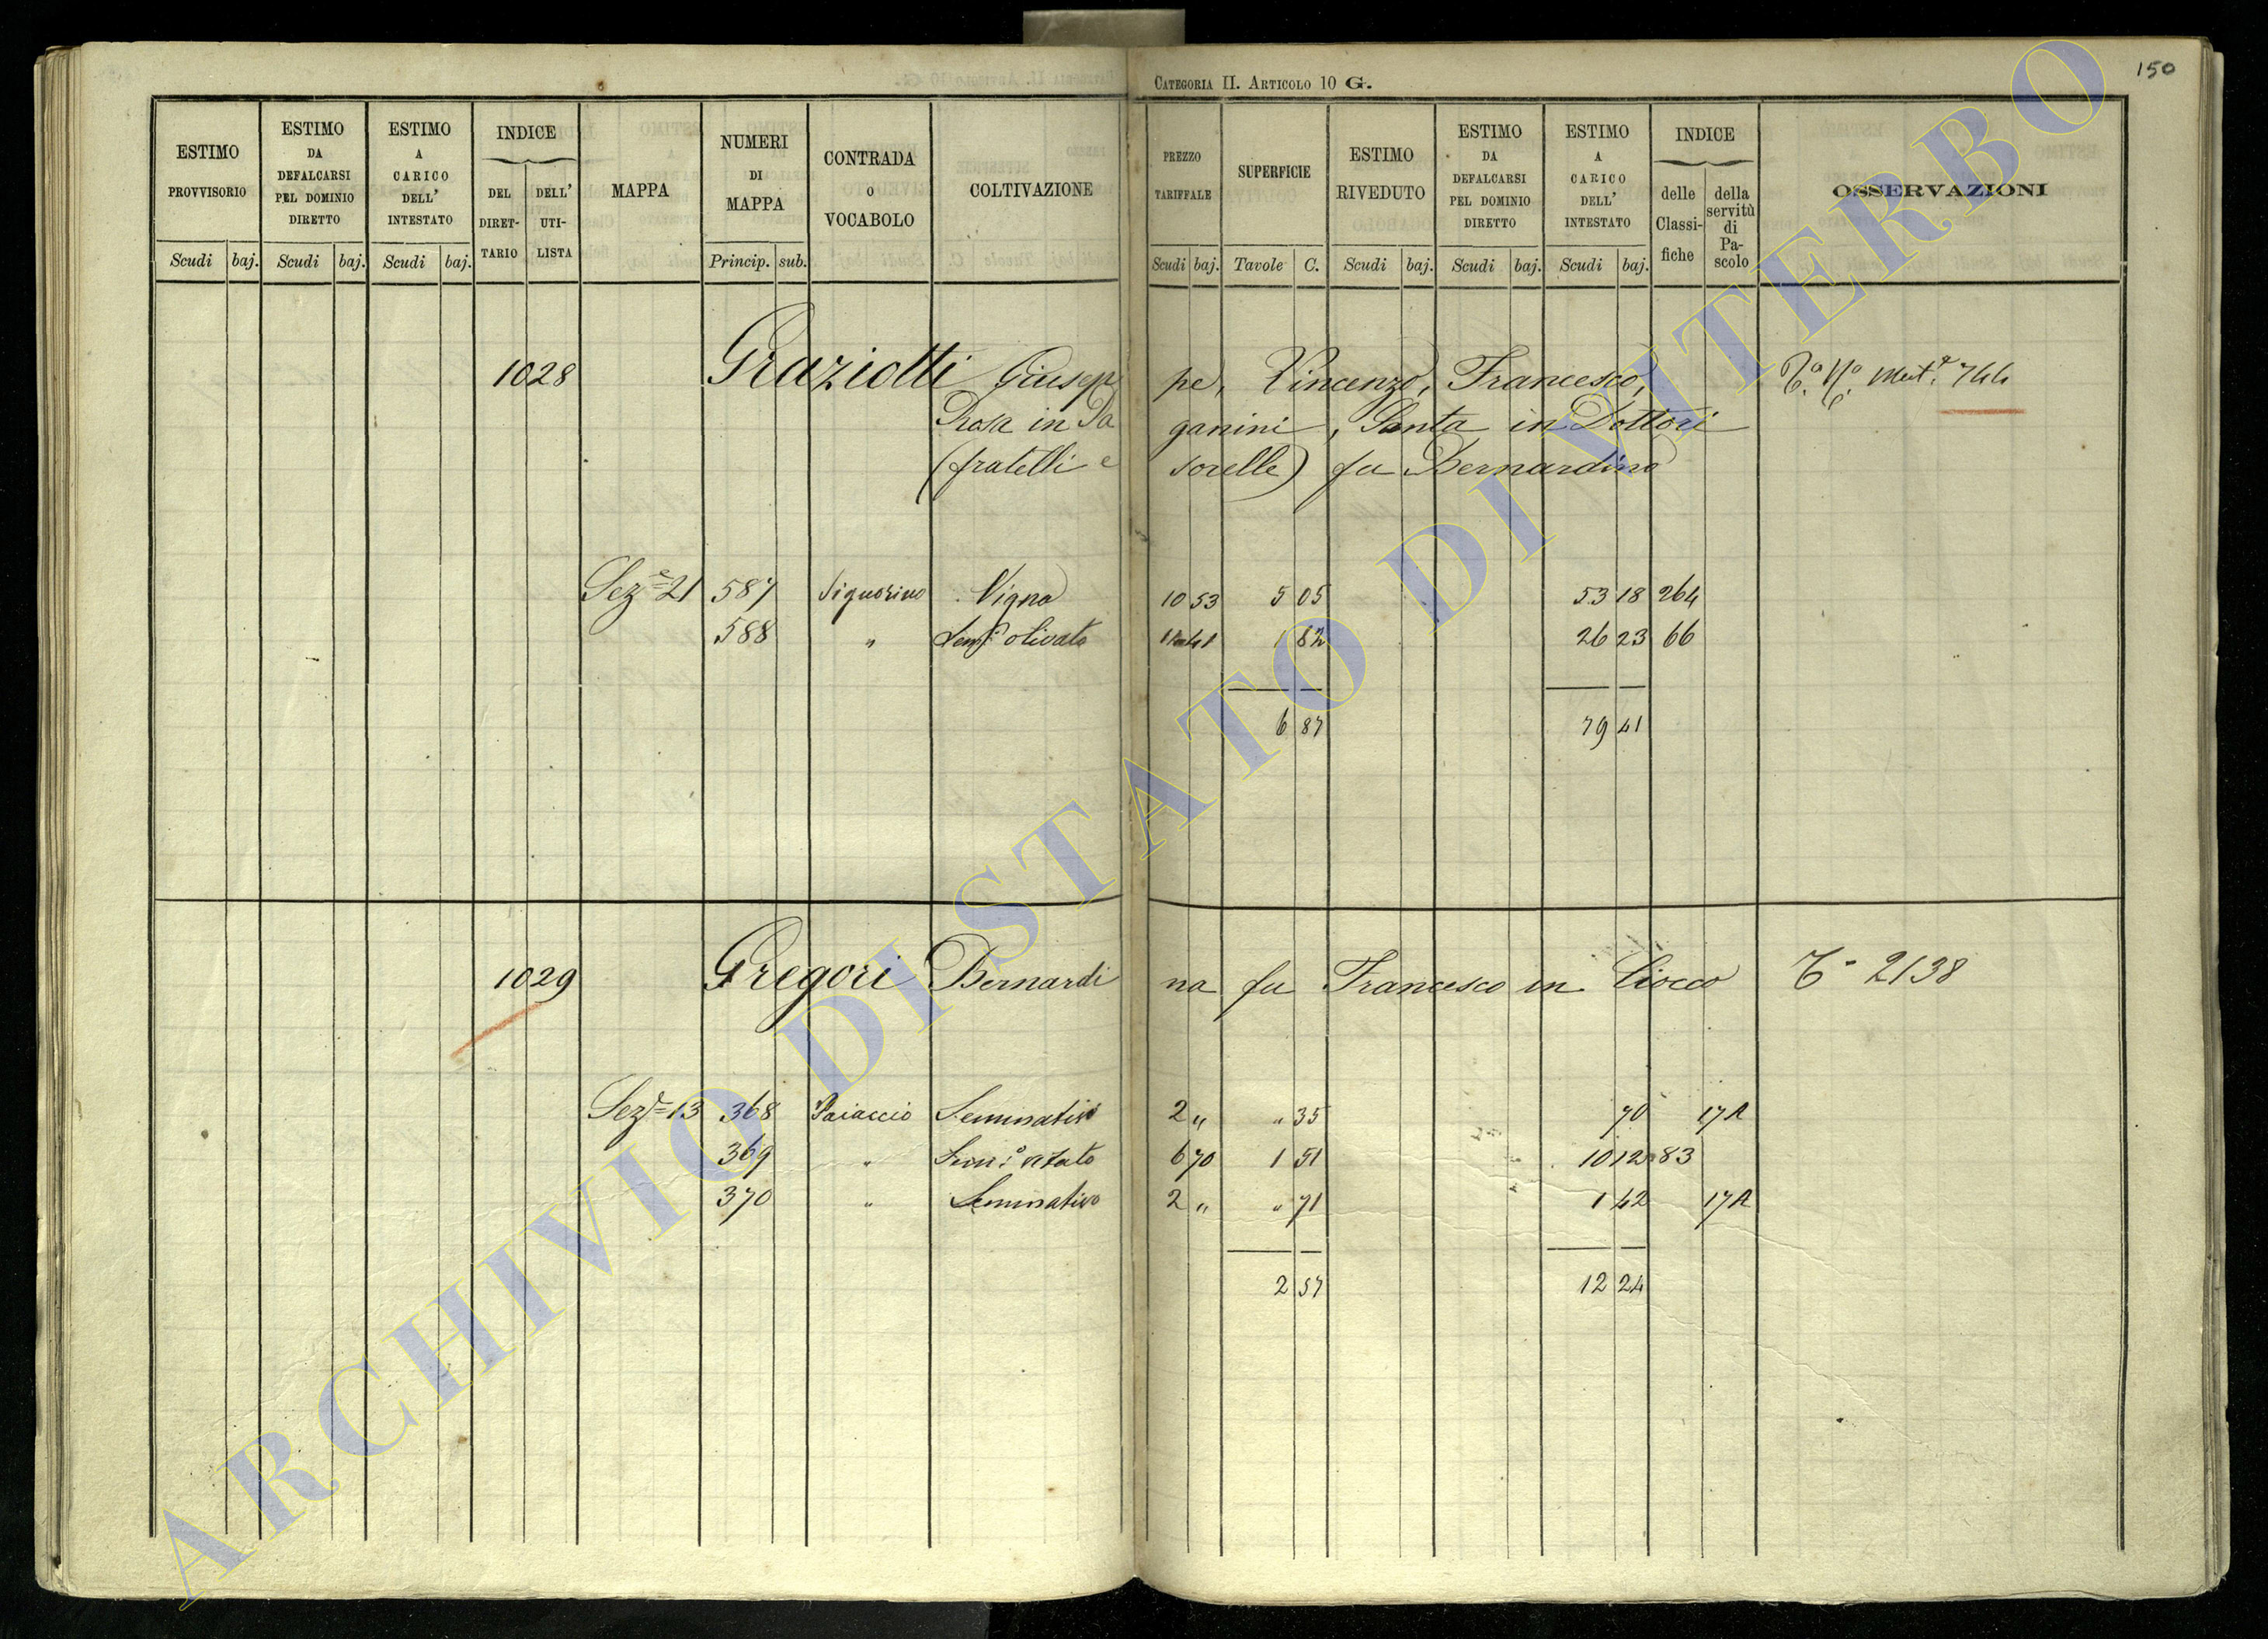 CATEGORIA II. ARTICOLO 10 G.
150
ESTIMO PROVVISORIO Scudi baj.
ESTIMO DA DEFALCARSI PEL DOMINIO DIRETTO Scudi baj.
ESTIMO A CARICO DELL' INTESTATO Scudi baj.
INDICE DEL DIRET-TARIO DELL' UTI-LISTA
MAPPA
NUMERI DI MAPPA Princip. sub.
CONTRADA O VOCABOLO
COLTIVAZIONE
PREZZO TARIFFALE Scudi baj.
SUPERFICIE Tavole C.
ESTIMO RIVEDUTO Scudi baj.
ESTIMO DA DEFALCARSI PEL DOMINIO DIRETTO Scudi baj.
ESTIMO A CARICO DELL' INTESTATO Scudi baj.
INDICE delle Classi-fiche della servitù di Pa-scolo
OSSERVAZIONI
1028 Graziotti Giusep pe, Vincenzo, Francesco, 744
Rosa in Pa ganini, Santa in Dottori
(fratelli e sorelle) fu Bernardino
Sez.e 21 587 Signorino Vigna 10 53 5 05 53 18 264
588 " Sem.o olivato 1 82 26 23 66
6 87 79 41
1029 Gregori Bernardi na fu Francesco in Ciocco 2138
Sez.e 13 368 Paiaccio Seminativo 2 " " 35 70 17A
369 " Sem.o vitato 6 70 1 51 10 12 83
370 " Seminativo 2 " " 71 1 42 17A
2 57 12 24
ARCHIVIO DI STATO DI VITERBO